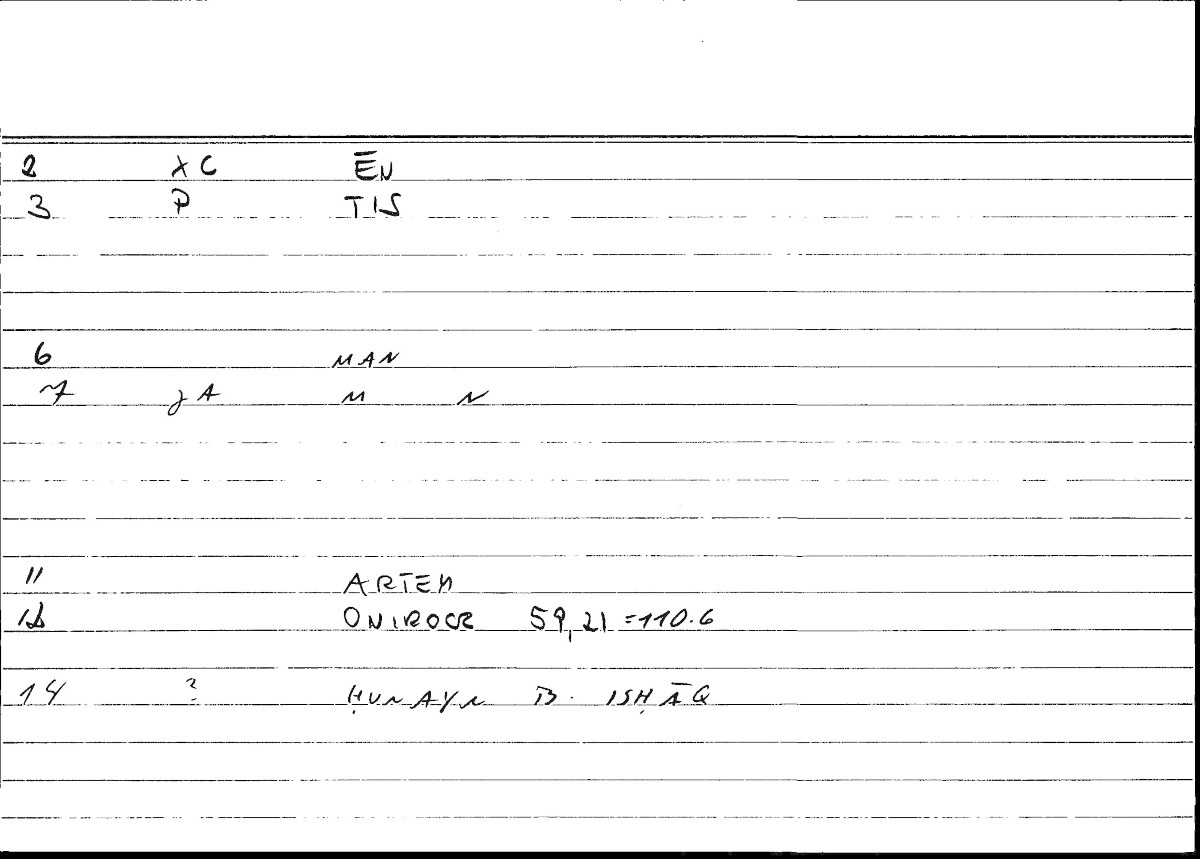 2 XC ĒN
3 P TIS
6 MAN
7 JA M N
11 ARTEM
12 ONIROCR 59,21 =110.6
14 ? ḤUNAYN B. ISḤĀQ